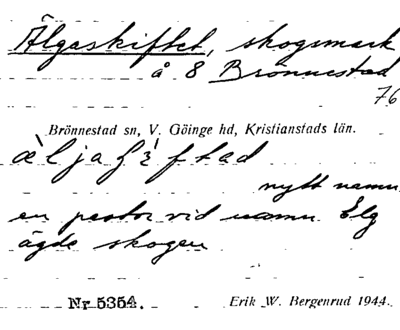 Älgaskiftet, skogsmark
å 8 Brönnestad
76
Brönnestad sn, V. Göinge hd, Kristianstads län.
nytt namn
en pastor vid namn Elg
ägde skogen
Nr 5354. Erik W. Bergenrud 1944.